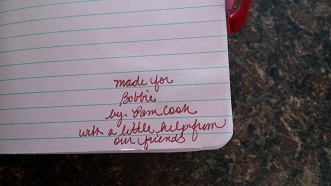 made for
Bobbie
by Pam Cook
with a little help from
our friends